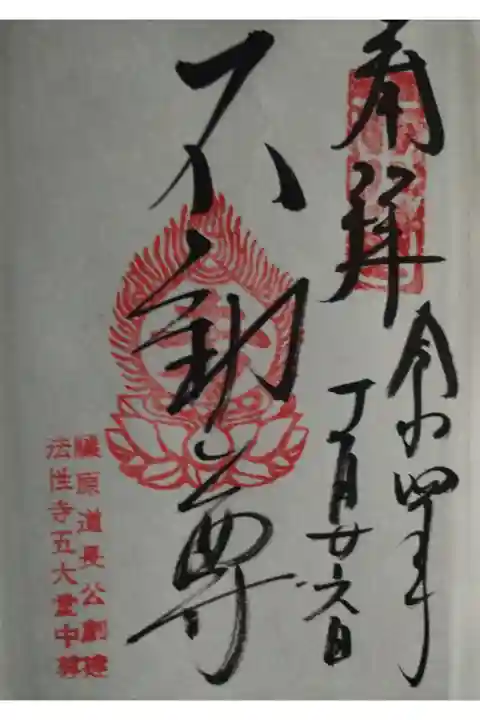 奉拜
令和四年
丁月廿六日
不動尊
藤原道長公創建
法性寺五大堂中尊